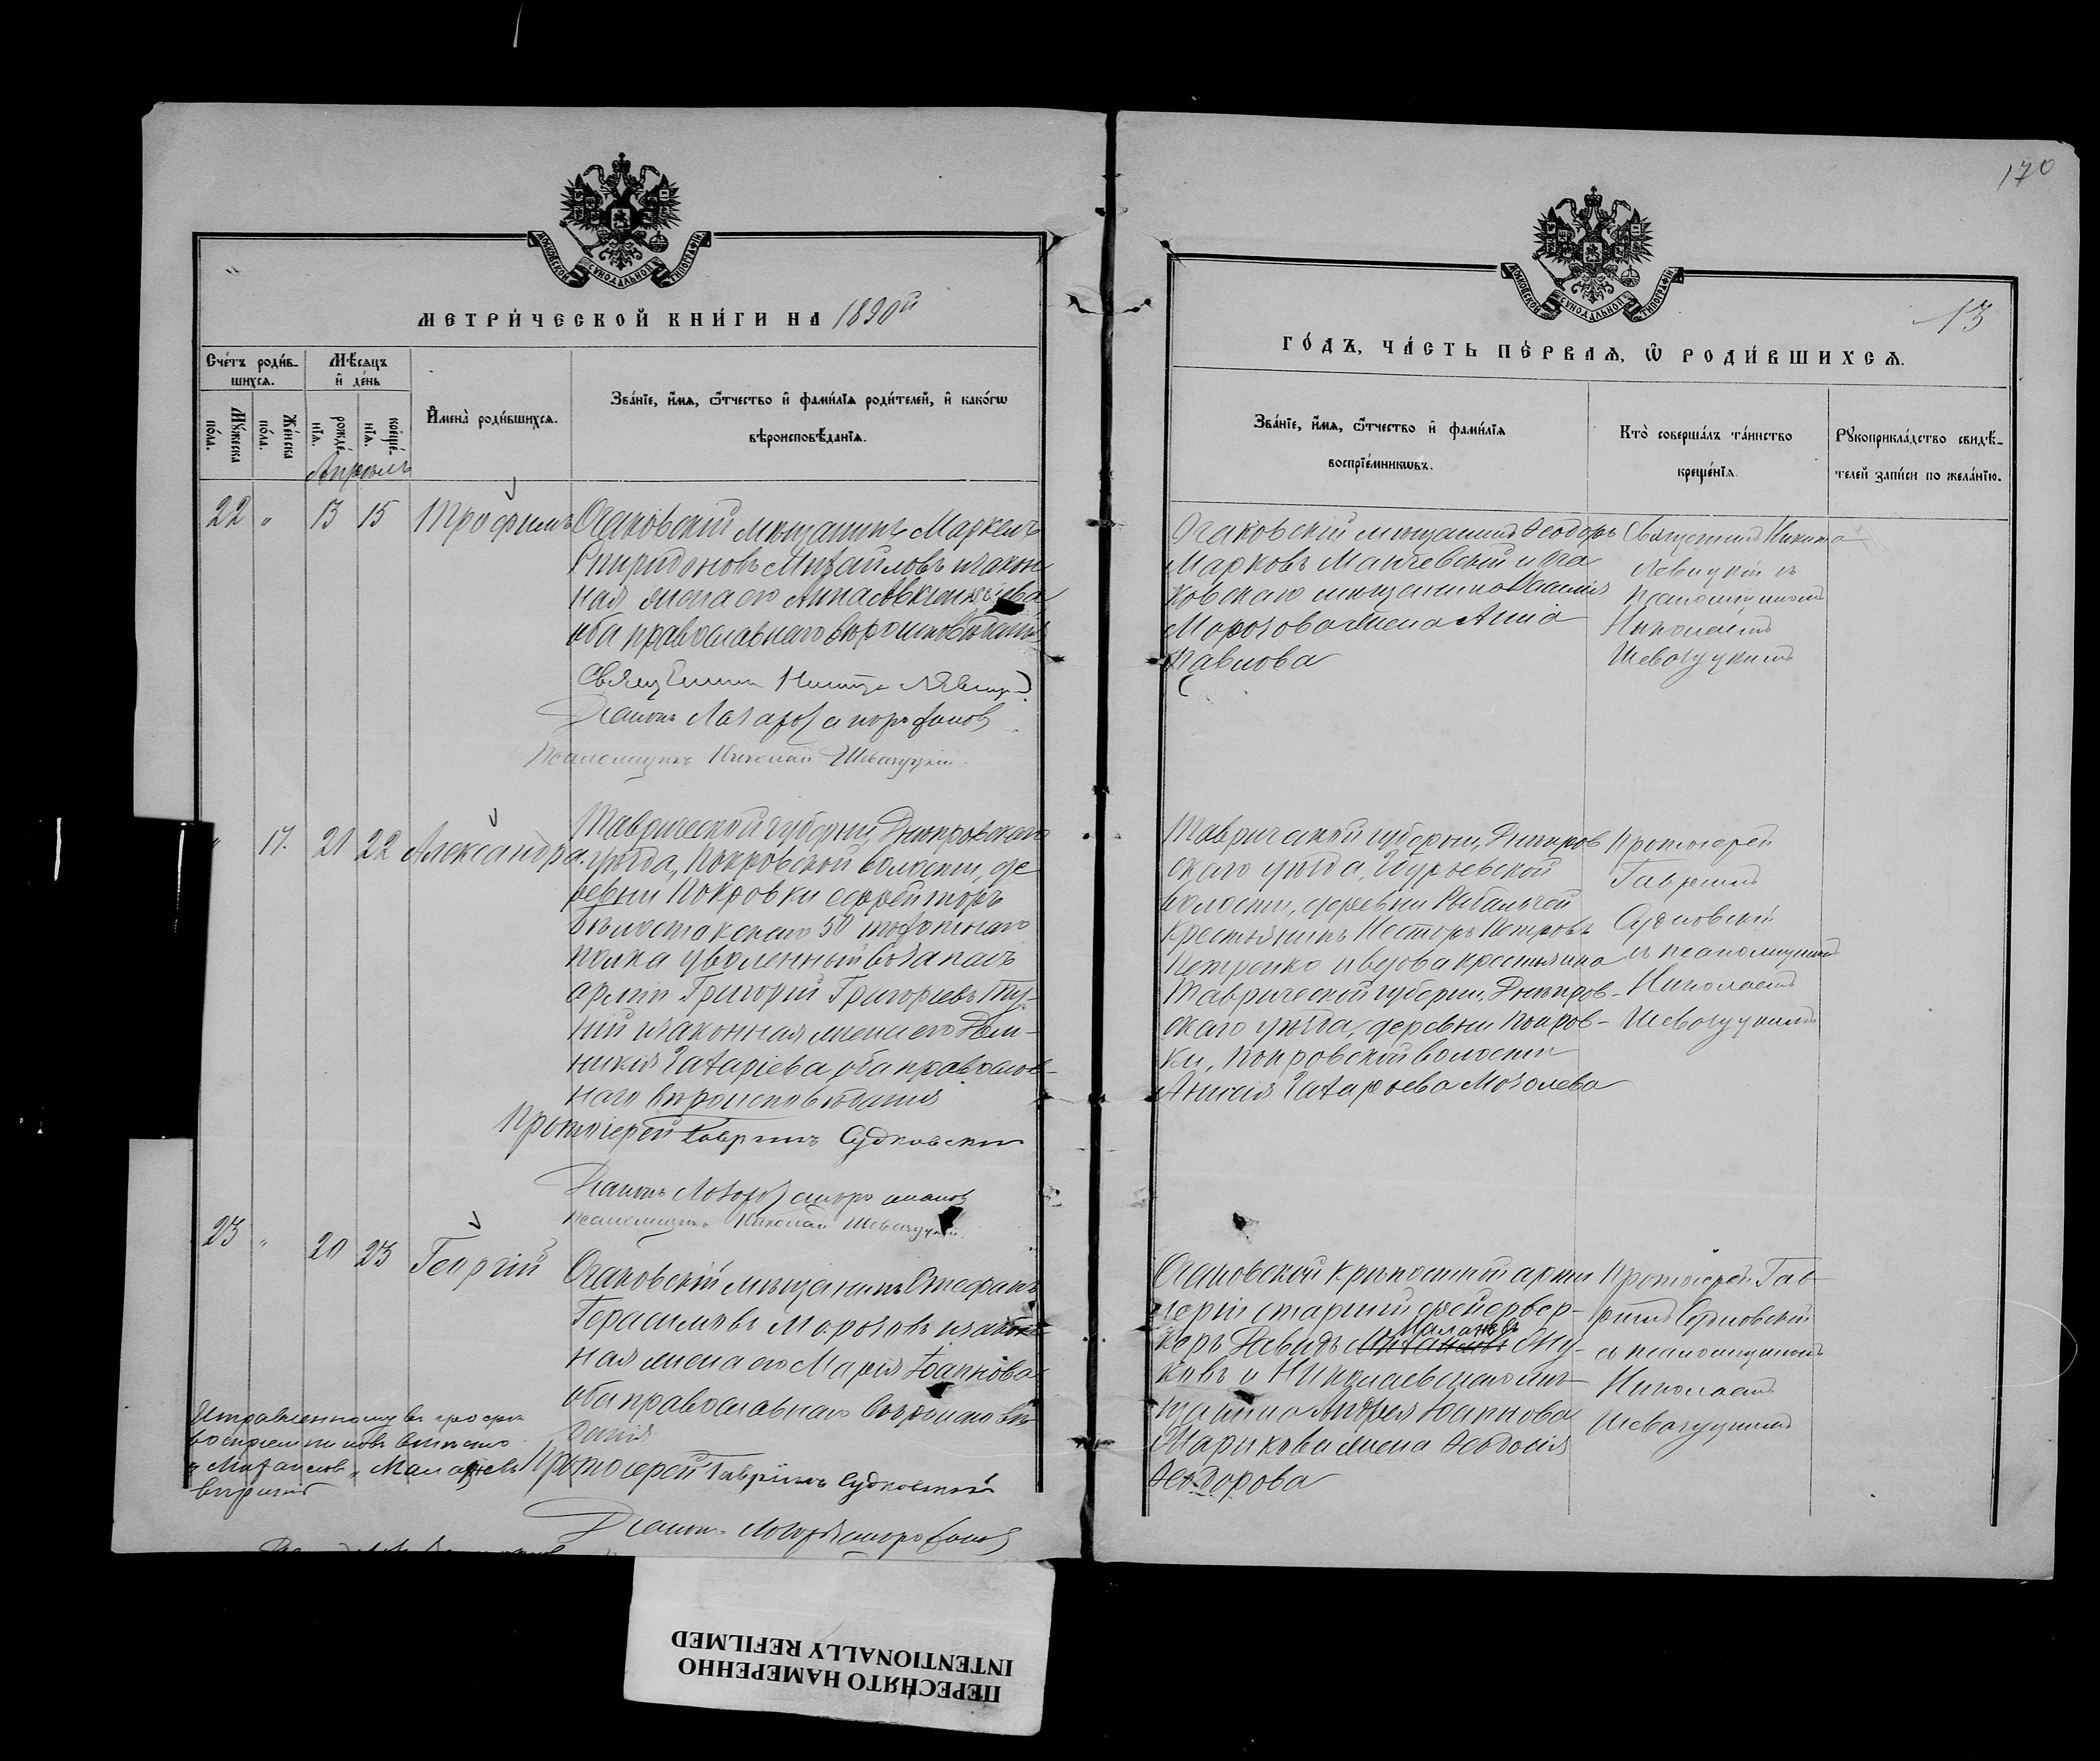 170
МОСКОВСКОЙ СѴНОДАЛЬНОЙ ТИПОГРАФІИ
МЕТРИ́ЧЕСКОЙ КНИ́ГИ НА 1890й
Сче́тъ роди́в-
шихсѧ.
Мѣ́сѧцъ
и҆ де́нь
Мꙋ́жеска
по́ла.
Же́нска
по́ла.
рожде́-
нїѧ.
креще́-
нїѧ.
И҆мена̀ роди́вшихсѧ.
Зва́нїе, и҆́мѧ, ѻ҆́тчество и҆ фами́лїѧ роди́телей, и҆ како́гѡ
вѣроисповѣ́данїѧ.
Апрель
22 " 13 15 Трофимъ
Очаковскій мѣщанинъ Маркелъ
Спиридоновъ Михайловъ и закон
ная жена его Анна Авксентіева
оба православнаго вѣроисповѣданія
Священникъ Никита Левицкій
Діаконъ Лазарь
Псаломщикъ Николай Шевачуцкій
" 17. 21 22 Александра.
Таврической губерніи, Днѣпровскаго
уѣзда, Покровской волости, де
ревни Покровки ефрейторъ
Бѣлостокскаго 50 пѣхотнаго
полка уволенный въ запасъ
арміи Григорій Григорьевъ Ту-
ній и законная жена его Дом-
никія Захаріева оба православ-
наго вѣроисповѣданія
Протоіерей Гавріилъ Судковскій
Діаконъ Лазарь
Псаломщикъ Николай Шевачуцкій
23 " 20 23 Георгій
Очаковскій мѣщанинъ Стефанъ
Герасимовъ Морозовъ и закон
ная жена его Марія Іоаннова
оба православнаго вѣроисповѣ
данія
Протоіерей Гавріилъ Судковскій
Діаконъ Лазарь
Исправленному въ графѣ
воспріемниковъ вмѣсто
„Михайловъ„ Малаховъ
вѣрить
13
ГО́ДЪ, ЧА́СТЬ ПЕ́РВАѦ, Ѽ РОДИ́ВШИХСѦ.
Зва́нїе, и҆́мѧ, ѻ҆́тчество и҆ фами́лїѧ
воспрїе́мникѡвъ.
Кто̀ соверша́лъ та́инство
креще́нїѧ.
Рꙋкоприкла́дство свидѣ́-
телей за́писи по жела́нїю.
Очаковскій мѣщанинъ Ѳеодоръ
Марковъ Манчевскій и Оча
ковскаго мѣщанина
Морозова жена Анна
Павлова
Священникъ Никита
Левицкій съ
псаломщикомъ
Николаемъ
Шевачуцкимъ
Таврической губерніи, Днѣпров
скаго уѣзда, Збурьевской
волости, деревни Рыбальчей
крестьянинъ Несторъ Петровъ
Петренко и вдова крестьянина
Таврической губерніи, Днѣпров-
скаго уѣзда, деревни Покров-
ки, Покровской волости
Анисія Захарьева Моголева
Протоіерей
Гавріилъ
Судковскій
съ псаломщикомъ
Николаемъ
Шевачуцкимъ
Очаковской крѣпостной арти
леріи старшій фейервер-
Малаховъ
керъ Давидъ Михайловъ Жу-
ковъ и Николаевскаго мѣ-
щанина Андрея Іоаннова
Шарикова жена Ѳеодосія
Ѳеодорова
Протоіерей Гав-
ріилъ Судковскій
съ псаломщикомъ
Николаемъ
Шевачуцкимъ
ПЕРЕСНЯТО НАМЕРЕННО
INTENTIONALLY REFILMED